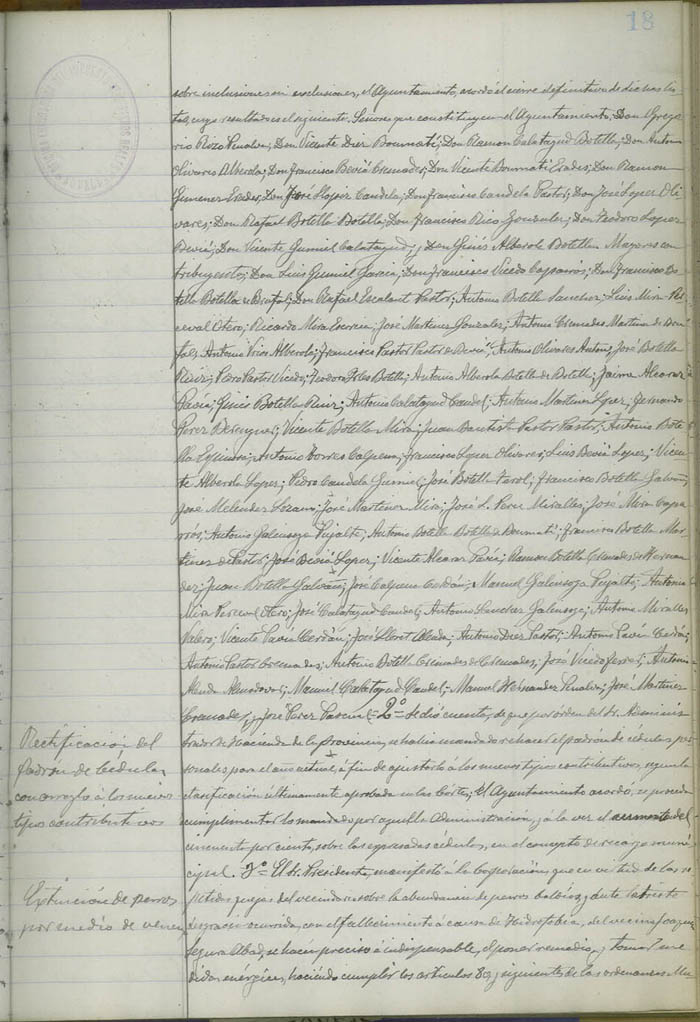 18
sobre inclusiones ni exclusiones, el Ayuntamiento, acordó el cierre definitivo de dichas lis-
tas, cuyo resultado es el siguiente. Señores que constituyen el Ayuntamiento, Don Grego-
rio Rizo Penalva; Don Vicente Diez Bonmatí; Don Ramon Calatayud Botella; Don Antonio
Olivares Alberola; Don Francisco Beviá Cremades; Don Vicente Bonmatí Erades; Don Ramon
Gimenez Erades; Don José Llopiz Candela; Don Francisco Candela Pastor; Don José Lopez Oli-
vares; Don Rafael Botella Botella; Don Francisco Rico Gonzalez; Don Teodoro Lopez
Beviá; Don Vicente Gumiel Calatayud; y Don Ginés Alberola Botella. Mayores con-
tribuyentes; Don Luis Gumiel Garcia; Don Francisco Vicedo Caparrós; Don Francisco Bo-
tella Botella de Don Rafael Escalant Pastor; Antonio Botella Sanchez; Luis Mira Per-
ceval Otero; Ricardo Mira José Martinez Gonzalez; Antonio Cremades Martinez de
Antonio Alberola; Francisco Pastor Pastor de Beviá; Antonio Olivares Antón; José Botella
Ruiz; Pedro Pastor Vicedo; Teodoro Botella; Antonio Alberola Botella de Botella; Jaime Alcaraz
Pavía; Ginés Botella Ruiz; Antonio Calatayud Candel; Antonio Martinez Lopez; Fernando
Perez Berenguer; Vicente Botella Mira; Juan Bautista Pastor Pastor; Antonio Bote-
lla Antonio Torres Calpena; Francisco Lopez Olivares; Luis Beviá Lopez; Vicen-
te Alberola Lopez; Pedro Candela Gumiel; José Botella Francisco Botella Galvañ;
José Melendez Lozano; José Martinez Mira; José L. Perez Miralles; José Mira Capa-
rrós; Antonio Galensoga Pujalte; Antonio Botella Botella de Bonmatí; Francisco Botella Mar-
tinez de Pastor; José Beviá Lopez; Vicente Alcaraz Pavía; Ramon Botella Cremades de Hernan-
dez; Juan Botella Galvañ; José Calpena Cerdán; Manuel Galensoga Pujalte; Antonio
Mira Perceval Otero; José Calatayud Candel; Antonio Sanchez Galensoga; Antonio Miralles
Valero; Vicente Pavía Cerdán; José Lloret Abada; Antonio Diez Pastor; Antonio Pavía Cerdán;
Antonio Pastor Cremades; Antonio Botella Cremades de Cremades; José Vicedo Ferrer; Antonio
Almodovar; Manuel Calatayud Candel; Manuel Hernandez Penalva; José Martinez
Cremades; y José Perez Pascual = 2.º = Se dió cuenta, de que por orden del Sr. Adminis-
trador de Hacienda de la Provincia, se habia mandado rehacer el padrón de cédulas per-
sonales para el año actual, á fin de ajustarlo á los nuevos tipos contributivos, segun la
clasificación últimamente aprobada en las Cortes; El Ayuntamiento acordó, se proceda
cumplimentar lo mandado por aquella Administración, y á la vez el aumento del
cincuenta por ciento, sobre las expresadas cédulas, en el concepto de recargo muni-
cipal. 3.º = El Sr. Presidente manifestó á la Corporación, que en virtud de las re-
petidas quejas del vecindario sobre la abundancia de perros y ante la triste
desgracia ocurrida, con el fallecimiento á causa de Hidrofobia, del vecino Joaquin
Segura Abad, se hacia preciso é indispensable, el poner remedio, y tomar me-
didas enérgicas, haciendo cumplir los artículos 82 y siguientes de las ordenanzas Mu-
Rectificación del
padrón de Cédulas
con arreglo á los nuevos
tipos contributivos
Extinción de perros
por medio de veneno